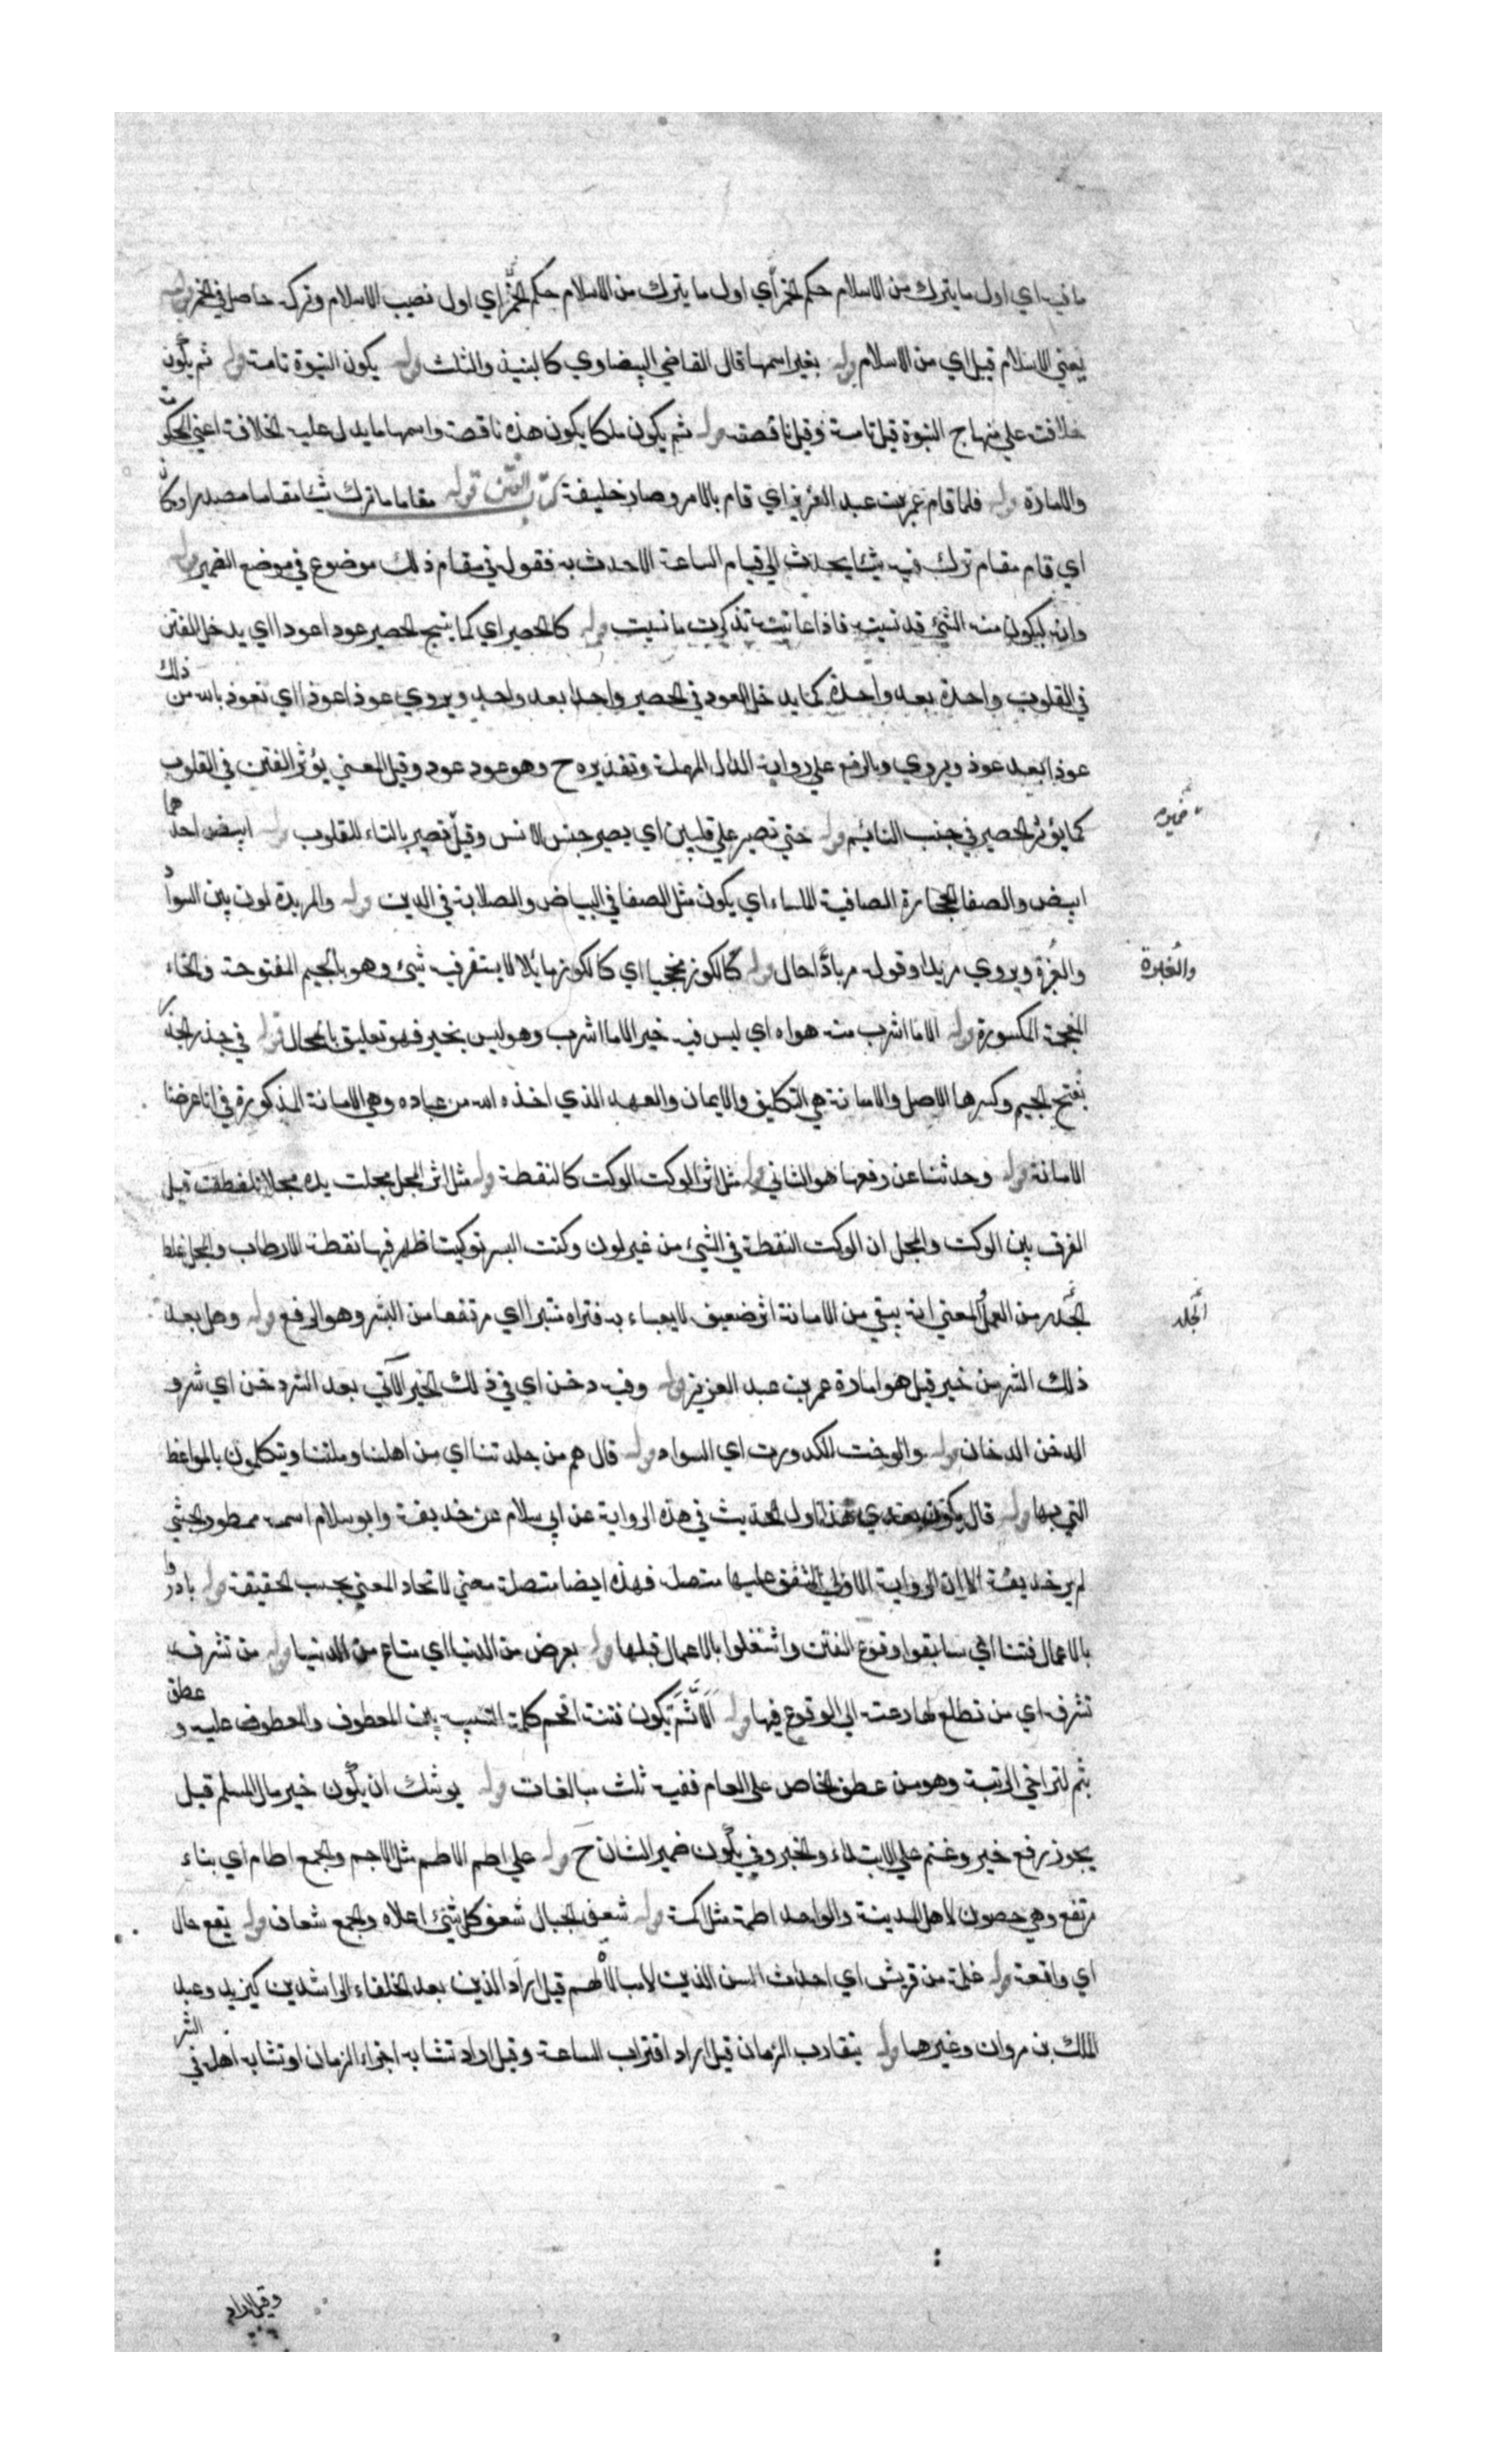 ما فيه اي اول ما يترك من الاسلام حكم الخمر اي اول ما يترك من الاسلام حكم الخمر اي اول نصيب الاسلام وتركه حاصل في الخمر قوله
يعني الاسلام قيل اي من الاسلام قوله بغير اسمها قال القاضي البيضاوي كالنبيذ والمثلث قوله يكون النبوة تامة قوله ثم يكون
خلافة علي منهاج النبوة قيل تامة وقيل ناقصة قوله ثم يكون ملكا يكون هذه ناقصة واسمها ما يدل عليه الخلافة اعني الحكومة
والامارة قوله فلما قام عمر بن عبد العزيز اي قام بالامر وصار خليفة كتاب الفتن قوله مقاما ما ترك شيئا مقاما مصدر او مكان
اي قام مقام ترك فيه شيئا يحدث الي قيام الساعة الا حدث به فقوله في مقام ذلك موضوع في موضع الضمير قوله
وانه ليكون منه الشئ قد نسيته فاذا عاينته تذكرت ما نسيت قوله كالحصير اي كما ينسج الحصير عودا عودا اي يدخل الفتن
في القلوب واحدة بعد واحدة كما يدخل العود في الحصير واحدا بعد واحد ويروي عوذا عوذا اي نعوذ بالله من ذلك
عوذا بعد عوذ ويروي وبالرفع علي رواية الدال المهملة وتقديره ح وهو عود عود وقيل المعني يؤثر الفتن في القلوب
كما يؤثر الحصير في جنب النائم قوله حتي تصير علي قلبين اي يصير جنس الانس وقيل تصير بالتاء للقلوب قوله ابيض احدهما
ابيض والصفا الحجارة الصافية الملساء اي يكون مثل الصفا في البياض والصلابة في الدين قوله والمربدة لون بين السواد
والغبرة ويروي مربدا وقوله مربادا حال قوله كالكوز مجخيا اي كالكوز مائلا لا يستقر فيه شئ وهو بالجيم المفتوحة والخاء
والغبرة
المعجمة المكسورة قوله الا ما اشرب من هواه اي ليس فيه خير الا ما اشرب وهو ليس بخير فهو تعليق بالمحال قوله في جذر
بفتح الجيم وكسرها الاصل والامانة هي التكليف والايمان والعهد الذي اخذه الله من عباده وهي الامانة المذكورة في انا عرضنا
الامانة قوله وحدثنا عن رفعها هو الثاني قوله مثل اثر الوكت الوكت كالنقطة قوله مثل اثر المجل مجلت يده مجلا تنفطت قيل
الفرق بين الوكت والمجل ان الوكت النقطة في الشئ من غير لون وكتت البسر توكيتا ظهر فيها نقطة الارطاب والمجل غلظ
الجلد من العمل المعني انه يبقي من الامانة اثر ضعيف لا يعباء به فتراه منتبرا اي مرتفعا من النبر وهو الرفع قوله وهل بعد
الجلد
ذلك الشر من خير قيل هو امارة عمر بن عبد العزيز قوله وفيه دخن اي في ذلك الخير الآتي بعد الشر دخن اي شر و
الدخن الدخان قوله والوخت الكدورت اي السواد قوله قال هم من جلدتنا اي من اهلنا وملتنا ويتكلمون بالمواعظ
التي بها قوله قال يكون بعدي هذا اول الحديث في هذه الرواية عن ابي سلام عن حذيفة وابو سلام اسمه ممطور الحبشي
لم ير حذيفة الا ان الرواية الاولي المتفق عليها متصلة فهذه ايضا متصلة معني لاتحاد المعني بحسب الحقيقة قوله بادروا
بالاعمال فتنا اي سابقوا وقوع الفتن واشتغلوا بالاعمال قبلها قوله بعرض من الدنيا اي متاع من الدنيا قوله من تشرف
تشرف اي من تطلع لها دعته الي الوقوع فيها قوله الا ثم يكون فتنة اقحم كلمة التنبيه بين المعطوف والمعطوف عليه و عطف
بثم لتراخي الرتبة وهو من عطف الخاص علي العام ففيه ثلث مبالغات قوله يوشك ان يكون خير مال المسلم قيل
يجوز رفع خير وغنم علي الابتداء والخبر وفي يكون ضمير الشان ح قوله علي اطم الاطم مثل الاجم والجمع اطام اي بناء
مرتفع وهي حصون لاهل المدينة والواحد اطمة مثل اكمة قوله شعف الجبال شعف كل شئ اعلاه والجمع شعاف قوله يقع حال
اي واقعة قوله غلمة من قريش اي احداث السن الذين لا مبالاة لهم قيل اراد الذين بعد الخلفاء الراشدين كيزيد وعبد
الملك بن مروان وغيرهما قوله يتقارب الزمان قيل اراد اقتراب الساعة وقيل اراد تشابه اجزاء الزمان او تشابه اهله في الشر
وقيل اراد